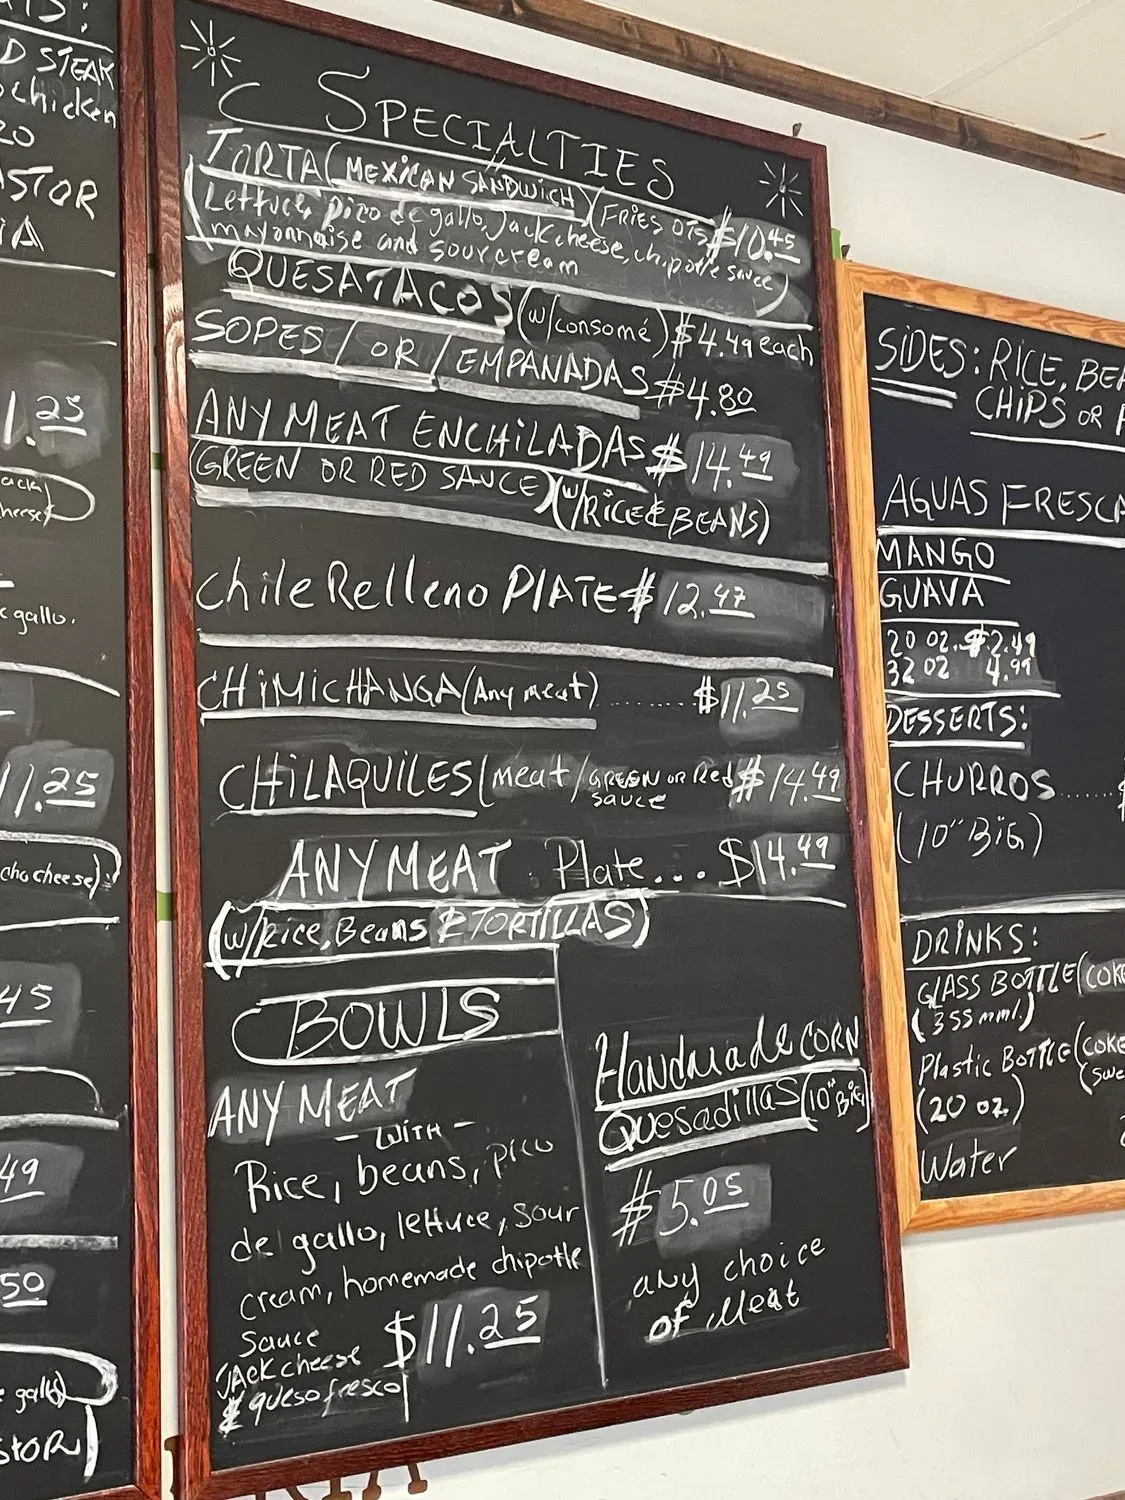 D STEAK
chicken
ASTOR
.25
gallo.
11.25
cho cheese)
45
49
50
SPECIALTIES
TORTA (MEXICAN SANDWICH) (FRIES $10.45
(Lettuce, pico de gallo, Jack cheese, chipotle sauce)
mayonnaise and sour cream
QUESATACOS (w/consomé) $4.49 each
SOPES / OR / EMPANADAS $4.80
ANY MEAT ENCHILADAS $14.49
(GREEN OR RED SAUCE) (w/RICE & BEANS)
Chile Relleno PLATE $12.47
CHIMICHANGA (Any meat) ........ $11.25
CHILAQUILES (meat / GREEN OR Red $14.49
sauce
ANY MEAT Plate... $14.49
(w/Rice, Beans & TORTILLAS)
BOWLS
ANY MEAT
- WITH -
Rice, beans, pico
de gallo, lettuce, sour
cream, homemade chipotle
sauce $11.25
JACK cheese
& queso fresco
Handmade CORN
Quesadillas (10" Big)
$5.05
any choice
of Meat
SIDES: RICE,
CHIPS OR
AGUAS
MANGO
GUAVA
20 OZ. $2.49
32 OZ 4.99
DESSERTS:
CHURROS ......
(10" BIG)
DRINKS:
GLASS BOTTLE (COKE
(355 mml.)
Plastic BOTTLE (COKE
(20 oz.)
Water